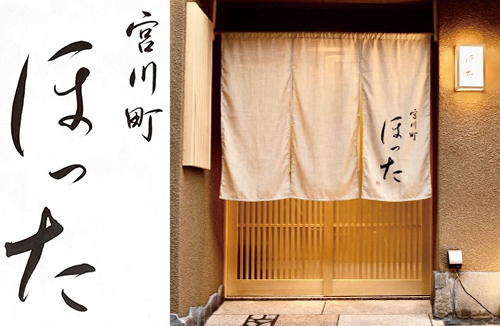 宮川町
ほった
宮川町
ほった
ほった